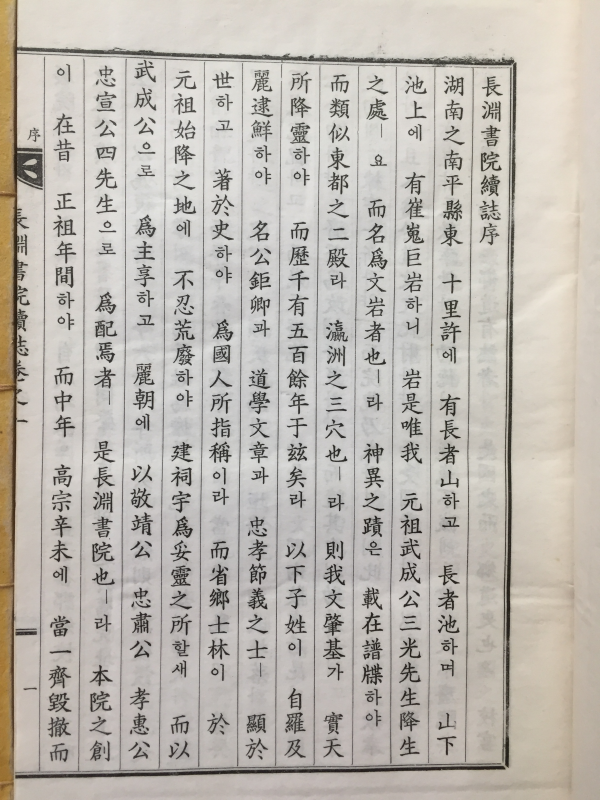 長淵書院續誌序
湖南之南平縣東 十里許에 有長者山하고 長者池하며 山下
池上에 有崔嵬巨岩하니 岩是唯我 元祖武成公三光先生降生
之處ㅣ요 而名爲文岩者也ㅣ라 神異之蹟은 載在譜牒하야
而類似東都之二殿라 瀛洲之三穴也ㅣ라 則我文肇基가 實天
所降靈하야 而歷千有五百餘年于玆矣라 以下子姓이 自羅及
麗逮鮮하야 名公鉅卿과 道學文章과 忠孝節義之士ㅣ 顯於
世하고 著於史하야 爲國人所指稱이라 而省鄕士林이 於
元祖始降之地에 不忍荒廢하야 建祠宇爲妥靈之所할새 而以
武成公으로 爲主享하고 麗朝에 以敬靖公 忠肅公 孝惠公
忠宣公四先生으로 爲配焉者ㅣ 是長淵書院也ㅣ라 本院之創
이 在昔 正祖年間하야 而中年 高宗辛未에 當一齊毁撤而
長淵書院續誌卷之一
序
一